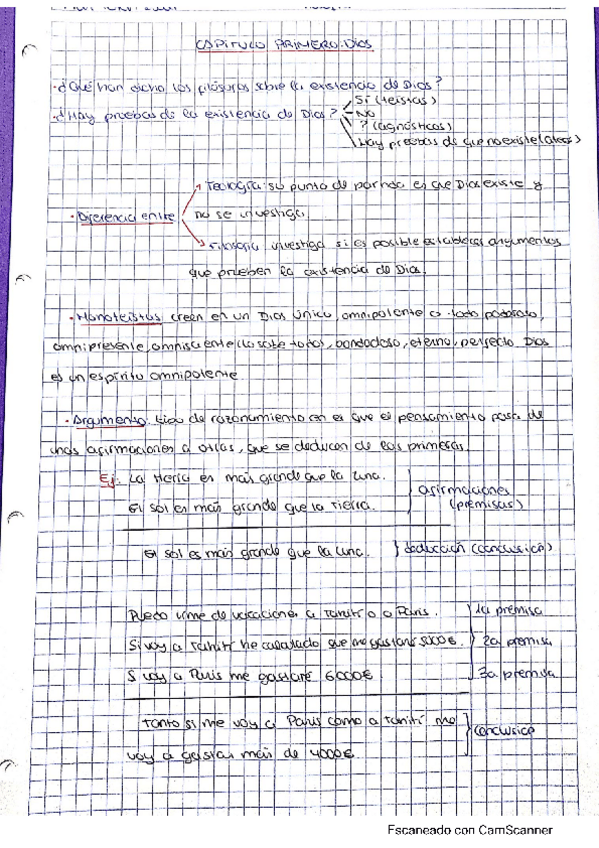 CAPÍTULO PRIMERO: DIOS
· ¿Qué han dicho los filósofos sobre la existencia de Dios?
· ¿Hay pruebas de la existencia de Dios?
Sí (teístas)
NO
? (agnósticos)
Hay pruebas de que no existe (ateos)
· Diferencia entre
Teología: su punto de partida es que Dios existe y
no se investiga.
Filosofía: investiga si es posible establecer argumentos
que prueben la existencia de Dios.
· Monoteístas creen en un Dios único, omnipotente o todo poderoso,
omnipresente, omnisciente (lo sabe todo), bondadoso, eterno, perfecto. Dios
es un espíritu omnipotente
· Argumento: tipo de razonamiento en el que el pensamiento pasa de
unas afirmaciones a otras, que se deducen de las primeras.
Ej: La tierra es más grande que la luna.
El sol es más grande que la tierra.
afirmaciones
(premisas)
El sol es más grande que la luna.
deducción (conclusión)
Puedo irme de vacaciones a Tahití o a París.
1a premisa
Si voy a Tahití he calculado que me gastaré 5000€.
2a premisa
Si voy a París me gastaré 6000€
3a premisa
Tanto si me voy a París como a Tahití me
voy a gastar más de 4000€.
conclusión
Escaneado con CamScanner